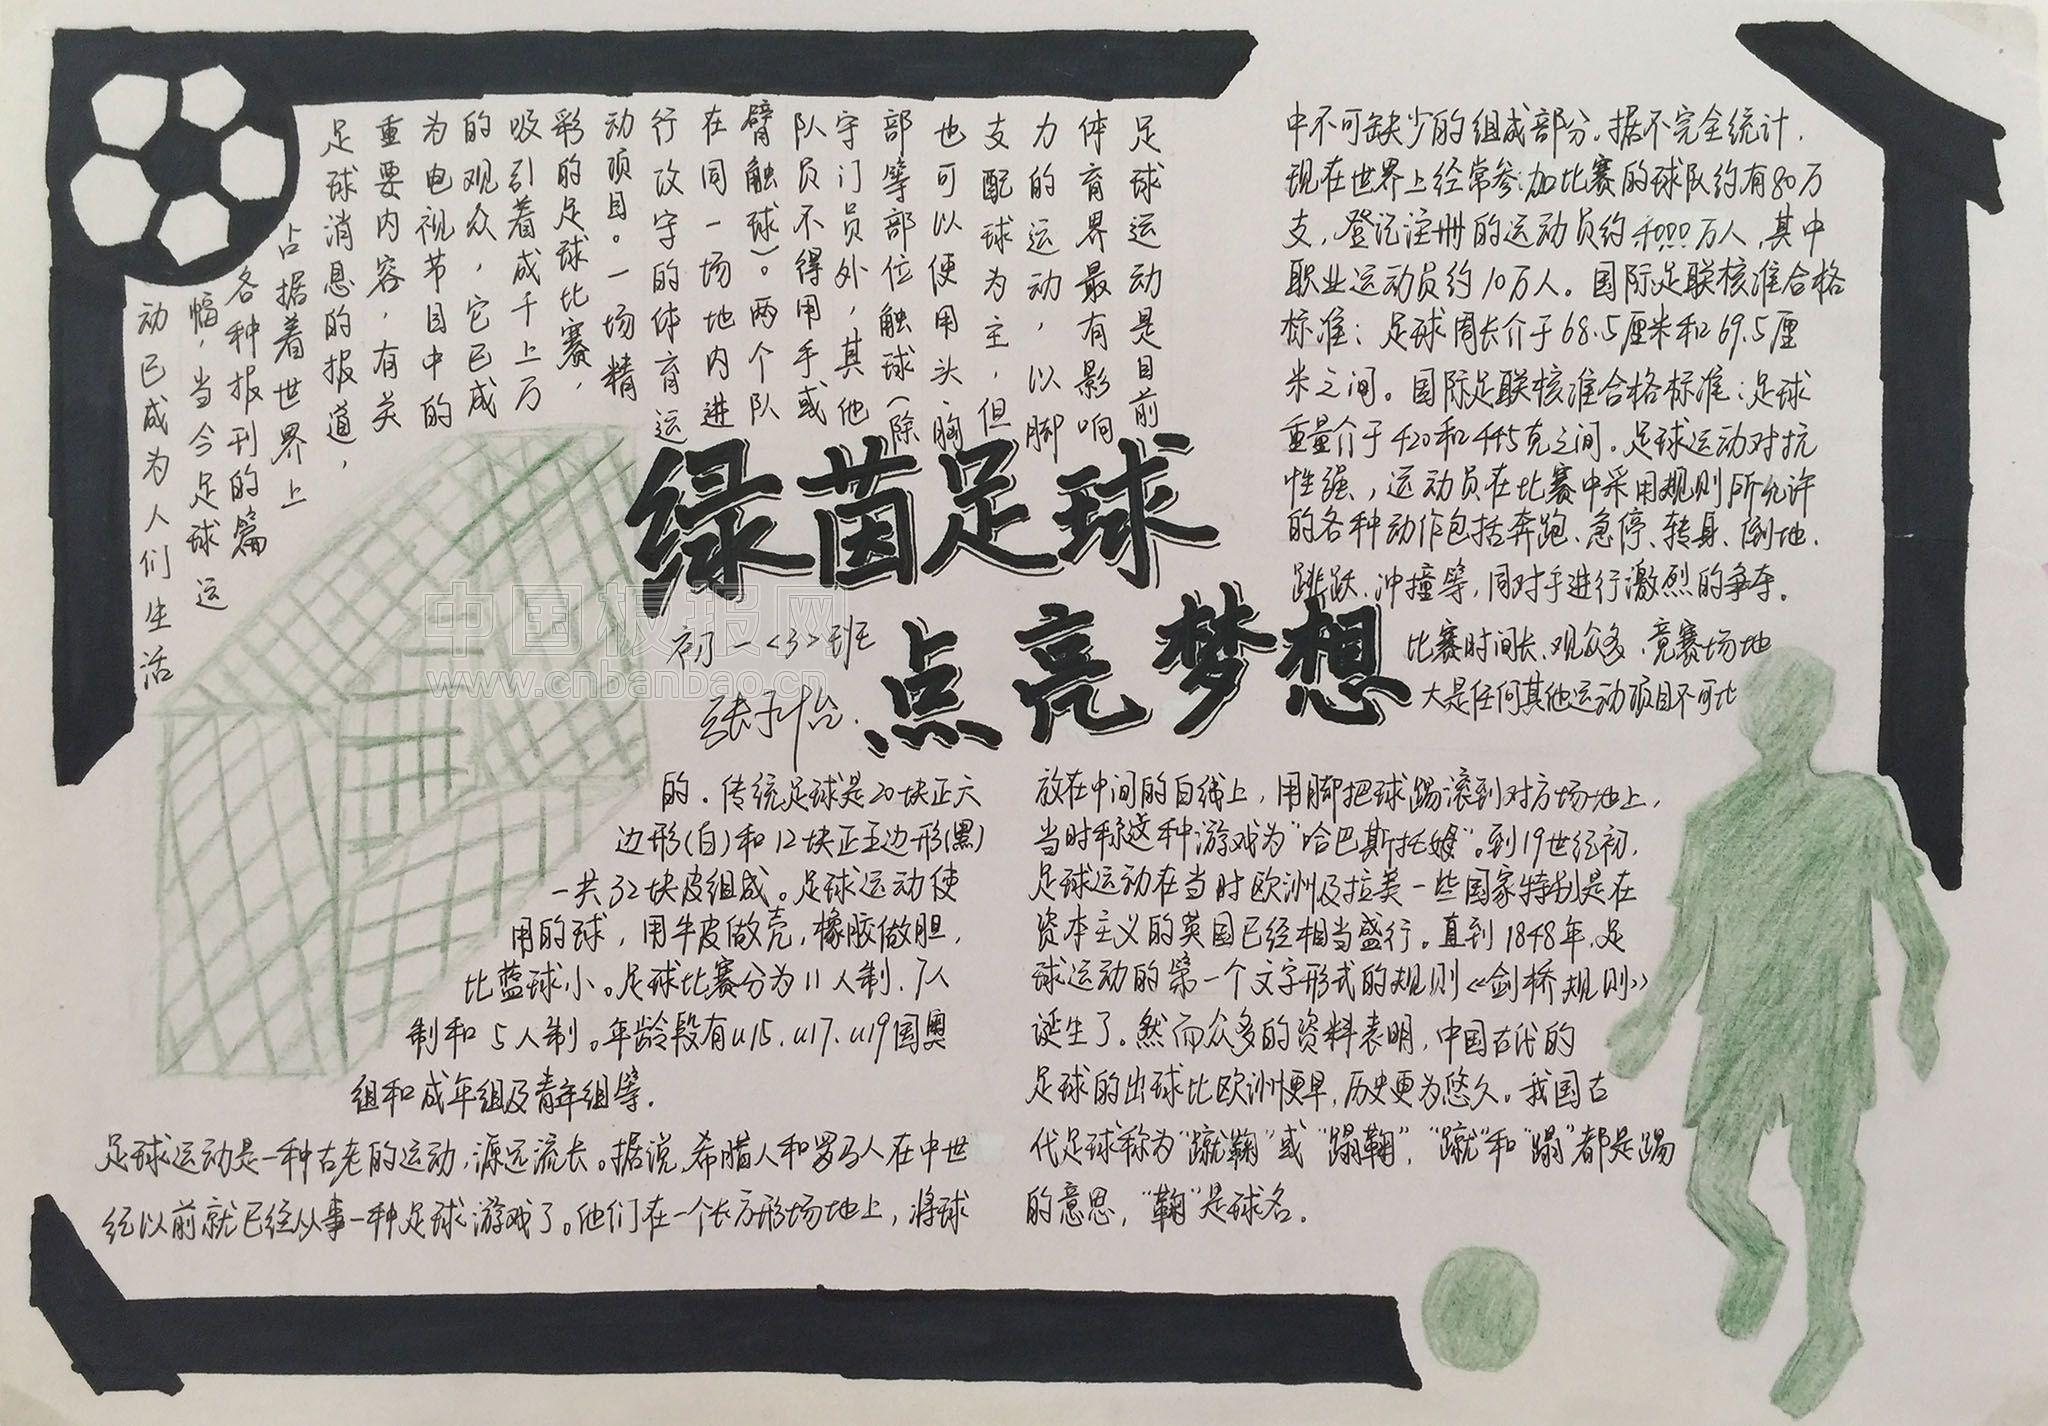 绿茵足球
点亮梦想
初一<3>班
足球运动是目前
体育界最有影响
力的运动，以脚
支配球为主，但
也可以使用头、胸
部等部位触球(除
守门员外，其他
队员不得用手或
臂触球)。两个队
在同一场地内进
行攻守的体育运
动项目。一场精
彩的足球比赛，
吸引着成千上万
的观众，它已成
为电视节目中的
重要内容，有关
足球消息的报道，
占据着世界上
各种报刊的篇
幅，当今足球运
动已成为人们生活
中不可缺少的组成部分。据不完全统计，
现在世界上经常参加比赛的球队约有80万
支，登记注册的运动员约4000万人，其中
职业运动员约10万人。国际足联核准合格
标准：足球周长介于68.5厘米和69.5厘
米之间。国际足联核准合格标准：足球
重量介于420和445克之间。足球运动对抗
性强，运动员在比赛中采用规则所允许
的各种动作包括奔跑、急停、转身、倒地、
跳跃、冲撞等，同对手进行激烈的争夺。
比赛时间长、观众多、竞赛场地
大是任何其他运动项目不可比
的。传统足球是20块正六
边形(白)和12块正五边形(黑)
一共32块皮组成。足球运动使
用的球，用牛皮做壳，橡胶做胆，
比蓝球小。足球比赛分为11人制、7人
制和5人制。年龄段有u15、u17、u19国奥
组和成年组及青年组等.
足球运动是一种古老的运动，源远流长。据说，希腊人和罗马人在中世
纪以前就已经从事一种足球游戏了。他们在一个长方形场地上，将球
放在中间的白线上，用脚把球踢滚到对方场地上，
当时称这种游戏为“哈巴斯托姆”。到19世纪初，
足球运动在当时欧洲及拉美一些国家特别是在
资本主义的英国已经相当盛行。直到1848年，足
球运动的第一个文字形式的规则《剑桥规则》
诞生了。然而众多的资料表明，中国古代的
足球的出球比欧洲更早，历史更为悠久。我国古
代足球称为“蹴鞠”或“蹋鞠”，“蹴”和“蹋”都是踢
的意思，“鞠”是球名.
中国板报网
www.cnbanbao.cn